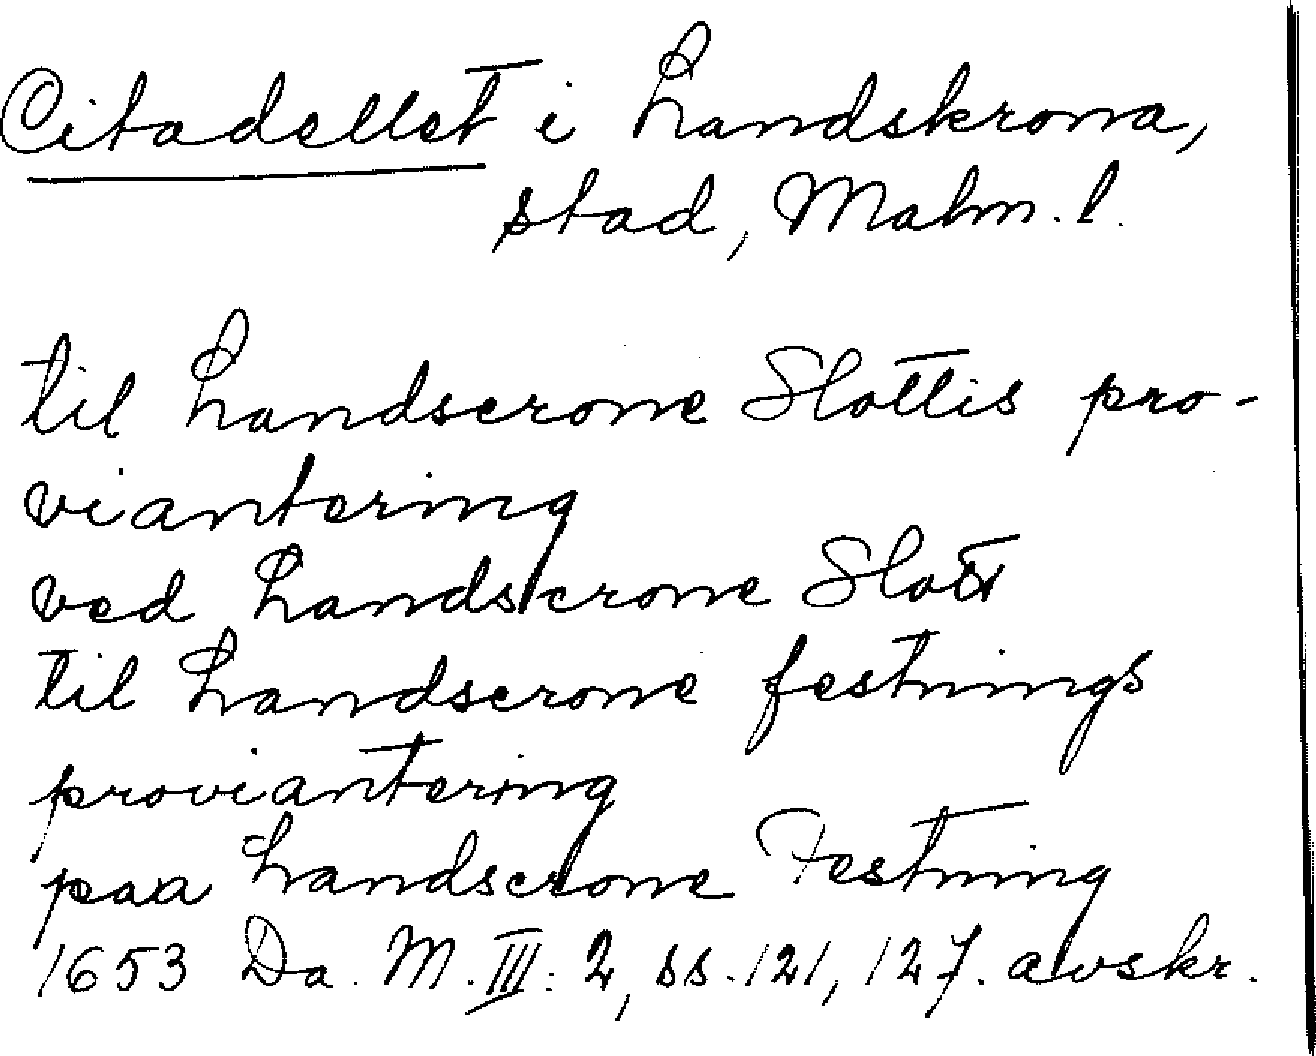 Citadellet i Landskrona,
stad, Malm. l.
til Landscrone Slottis pro-
viantering
ved Landscrone Slott
til Landscrone festnings
proviantering
paa Landscrone Festning
1653 Da. M. III: 2, ss. 121, 127. avskr.